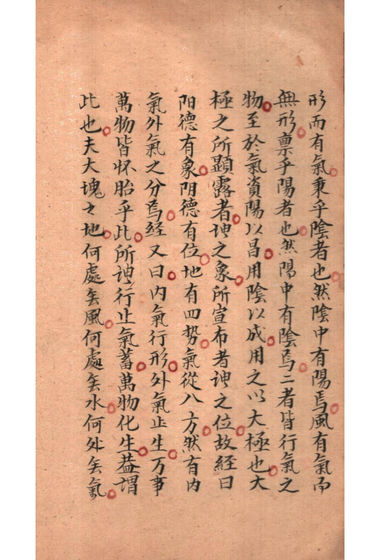 形而有氣秉乎陰者也然陰中有陽焉風有氣而
無形稟乎陽者也然陽中有陰焉二者皆行氣之
物至於氣資陽以昌用陰以成用之以大極也大
極之所顯露者謂之象所宣布者謂之位故經曰
阳德有象阴德有位地有四勢氣從八方然有内
氣外氣之分焉經又曰内氣行形外氣止生万事
萬物皆怀胎乎此所謂行止氣蓄萬物化生葢謂
此也夫大塊之地何處無風何處無水何处無氣